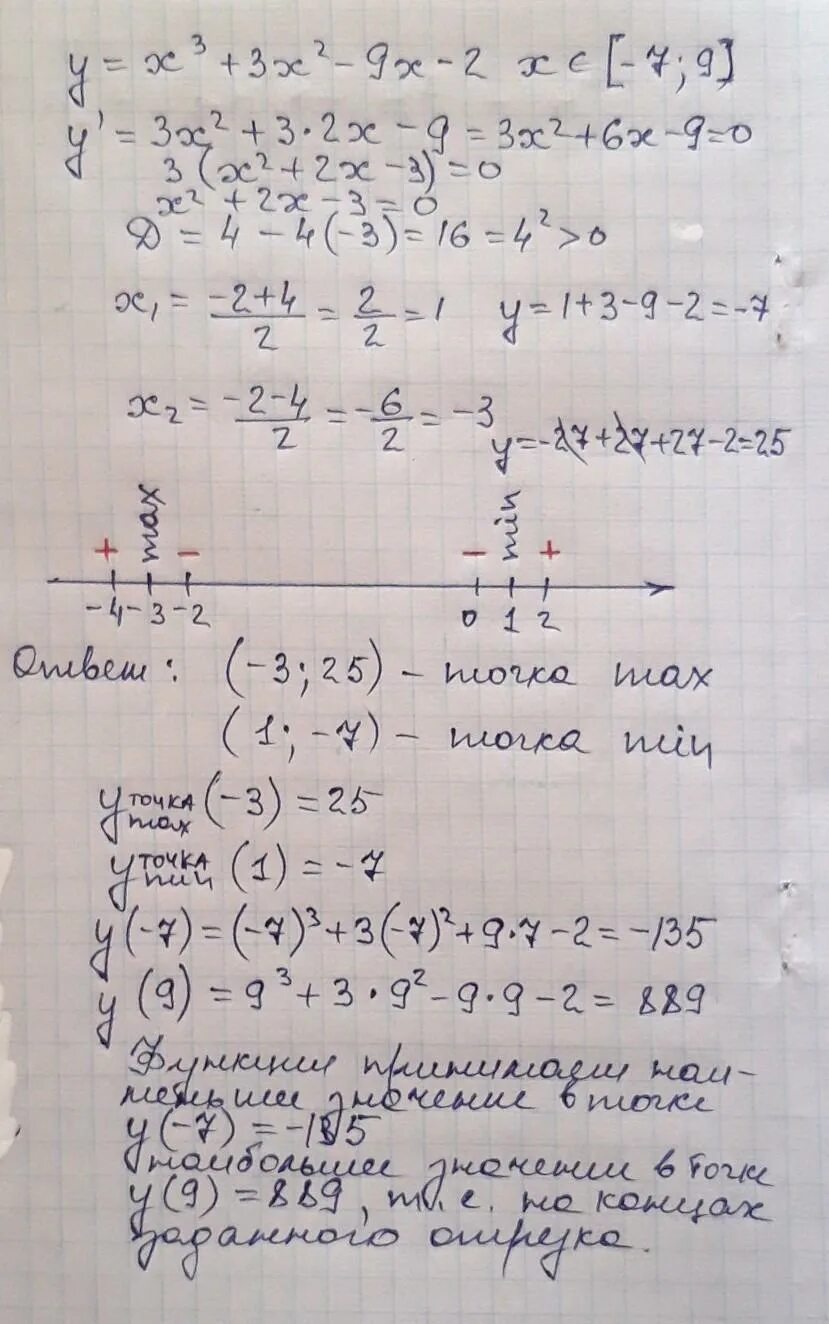 y = x³ + 3x² - 9x - 2 x ∈ [-7; 9]
y' = 3x² + 3·2x - 9 = 3x² + 6x - 9 = 0
3 (x² + 2x - 3) = 0
x² + 2x - 3 = 0
D = 4 - 4(-3) = 16 = 4² > 0
x₁ = (-2+4)/2 = 2/2 = 1 y = 1+3-9-2 = -7
x₂ = (-2-4)/2 = -6/2 = -3
y = -27+27+27-2=25
max min
+ - - +
-4 -3 -2 0 1 2
Ответ: (-3; 25) - точка max
(1; -7) - точка min
y точка max (-3) = 25
y точка min (1) = -7
y(-7) = (-7)³ + 3(-7)² + 9·7 - 2 = -135
y (9) = 9³ + 3·9² - 9·9 - 2 = 889
Функции принимает наи-
меньшее значение в точке
y(-7) = -135
наибольшее значении в точке
y(9) = 889, т.е. на концах
заданного отрезка.